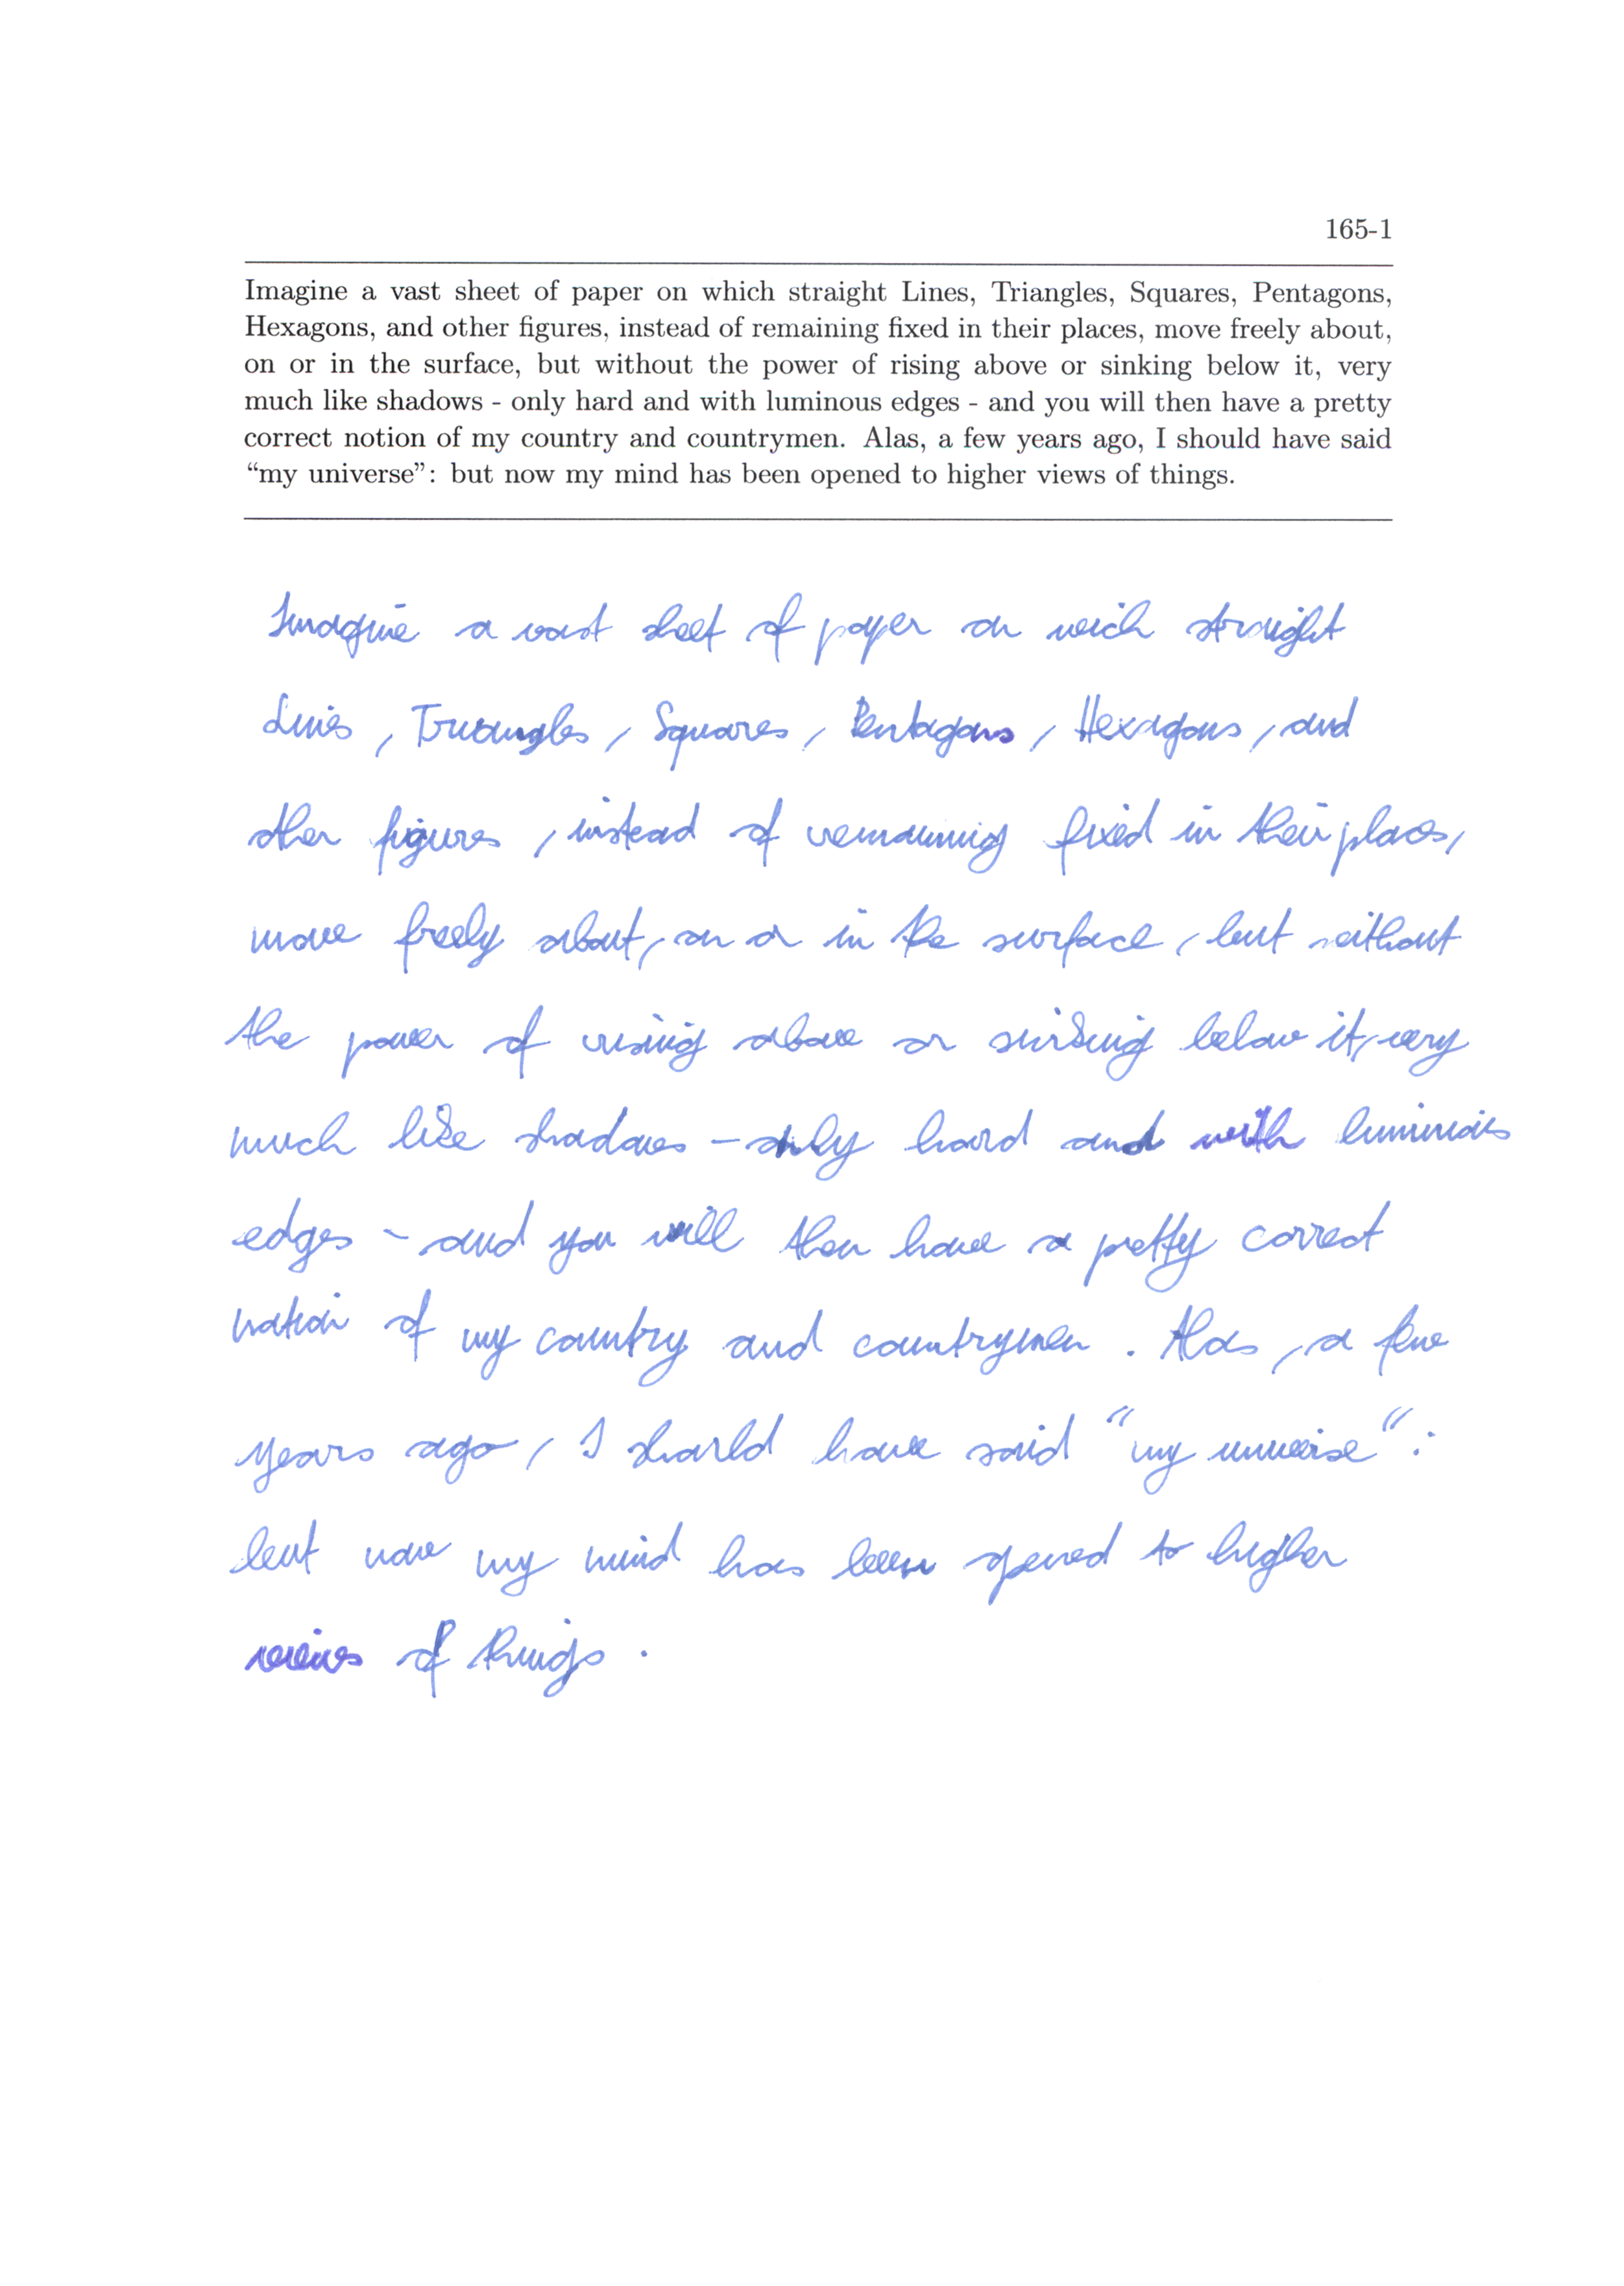 165-1
Imagine a vast sheet of paper on which straight Lines, Triangles, Squares, Pentagons,
Hexagons, and other figures, instead of remaining fixed in their places, move freely about,
on or in the surface, but without the power of rising above or sinking below it, very
much like shadows - only hard and with luminous edges - and you will then have a pretty
correct notion of my country and countrymen. Alas, a few years ago, I should have said
“my universe”: but now my mind has been opened to higher views of things.
Imagine a vast sheet of paper on wich straight
Lines, Triangles, Squares, Pentagons, Hexagons, and
other figures, instead of remaining fixed in their places,
move freely about, on or in the surface, but without
the power of rising above or sinking below it, very
much like shadows - only hard and with luminous
edges - and you will then have a pretty correct
notion of my country and countrymen. Alas, a few
years ago, I should have said “my universe”:
but now my mind has been opened to higher
views of things.